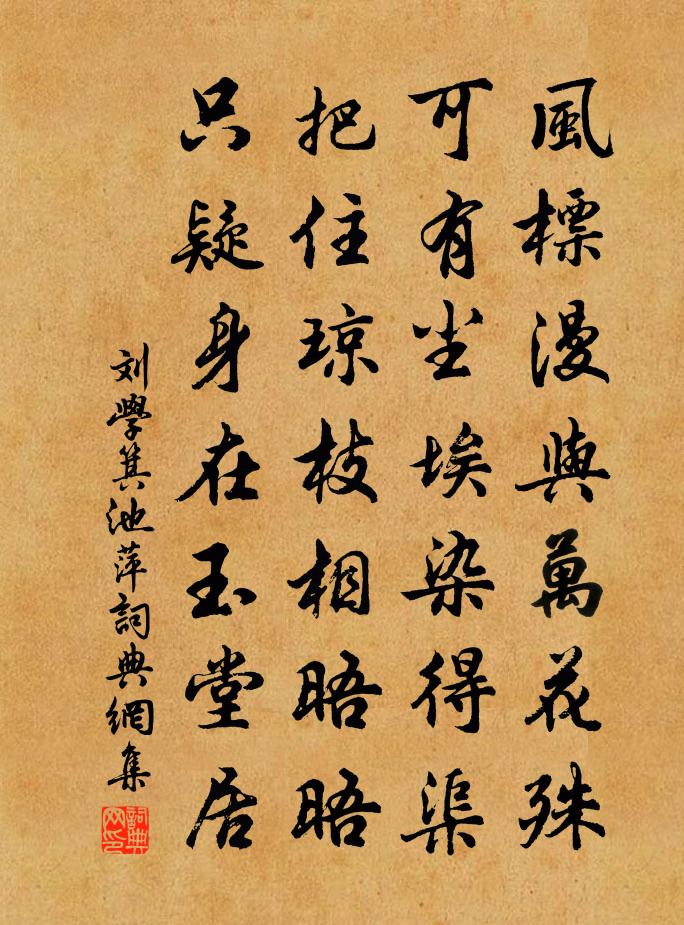 風標漫與萬花殊
可有尘埃染得渠
把住琼枝相晤晤
只疑身在玉堂居
刘學箕池萍詞典網集
詞典网印